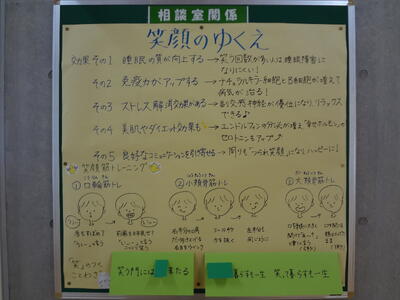 相談室関係
笑顔のゆくえ
効果その1 睡眠の質が向上する→笑う回数が多い人は睡眠障害に
なりにくい!
その2 免疫力がアップする→ナチュラルキラー細胞とB細胞が増えて
病気が治る!
その3 ストレス解消効果がある→副交感神経が優位になり、リラックス
できる♪
その4 美肌やダイエット効果も→エンドルフィンの分泌が増え「幸せホルモン」の
セロトニンもアップ
その5 良好なコミュニケーションを引き寄せる→周りも"つられ笑顔"になりハッピーに!
笑顔筋トレーニング
①口輪筋トレ ②小頬骨筋トレ ③大頬骨筋トレ
「笑」のつく
ことわざ
笑う門には 来たる
暮らすも一生 笑って暮らすも一生